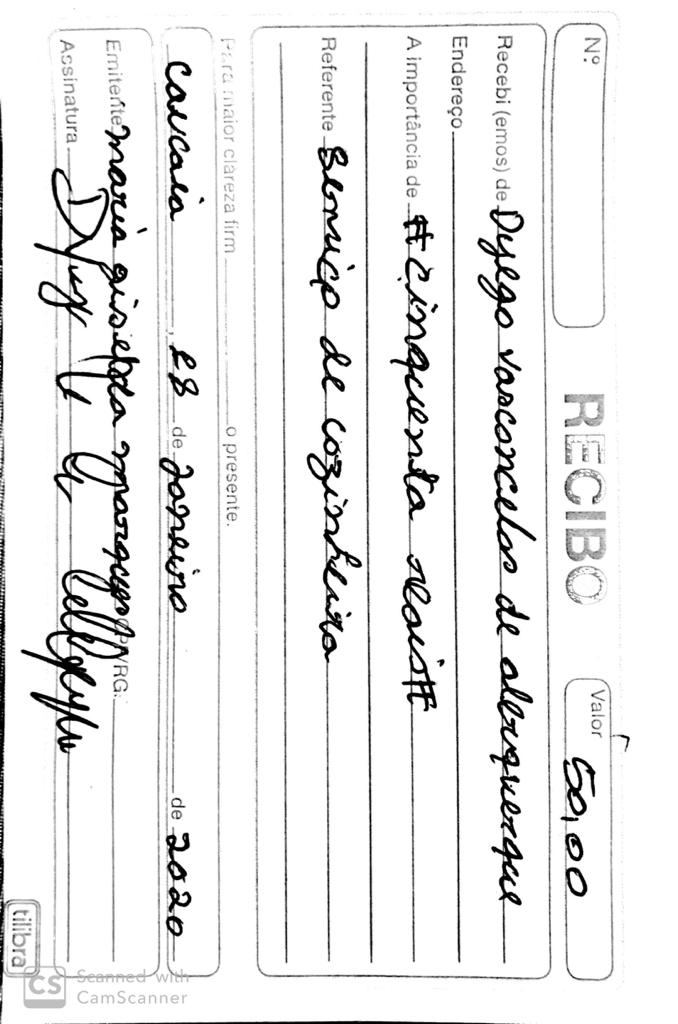 Nº RECIBO Valor 50,00
Recebi (emos) de Dyego vasconcelos de albuquerque
Endereço
A importância de #cinquenta reais#
Referente Serviço de cozinheira
Para maior clareza firm o presente.
Caucaia, 28 de Janeiro de 2020
Emitente maria CPF/RG:
Assinatura
tilibra
CS Scanned with
CamScanner